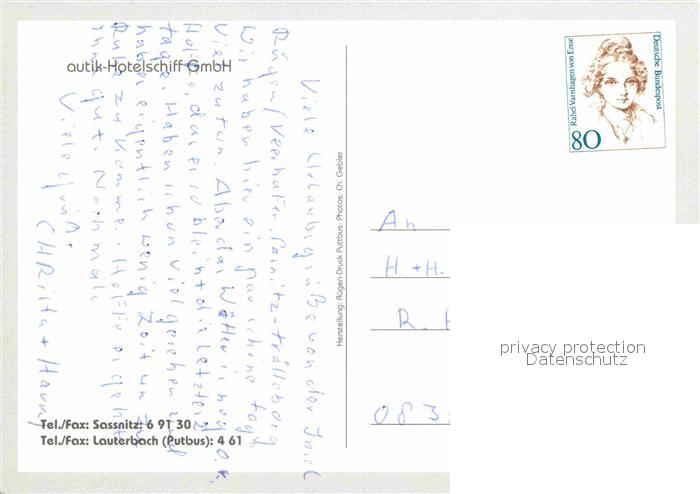 autik-Hotelschiff GmbH
Viele Urlaubsgrüße von der Insel
Rügen/
Wir haben hier ein paar schöne Tage
viel zu tun. Aber das Wetter ist O.K.
die letzten
Tage. Haben schon viel gesehen und
haben eigentlich wenig Zeit um zu
Ruhe zu kommen. Hoffe es geht
Ihnen gut. Nochmals
Viele Grüße
Tel./Fax: Sassnitz: 6 91 30
Tel./Fax: Lauterbach (Putbus): 4 61
Herstellung: Rügen-Druck Puttbus; Photos: Ch. Gebler
Rahel Varnhagen von Ense
Deutsche Bundespost
80
An
H. + H.
R.
083
privacy protection
Datenschutz